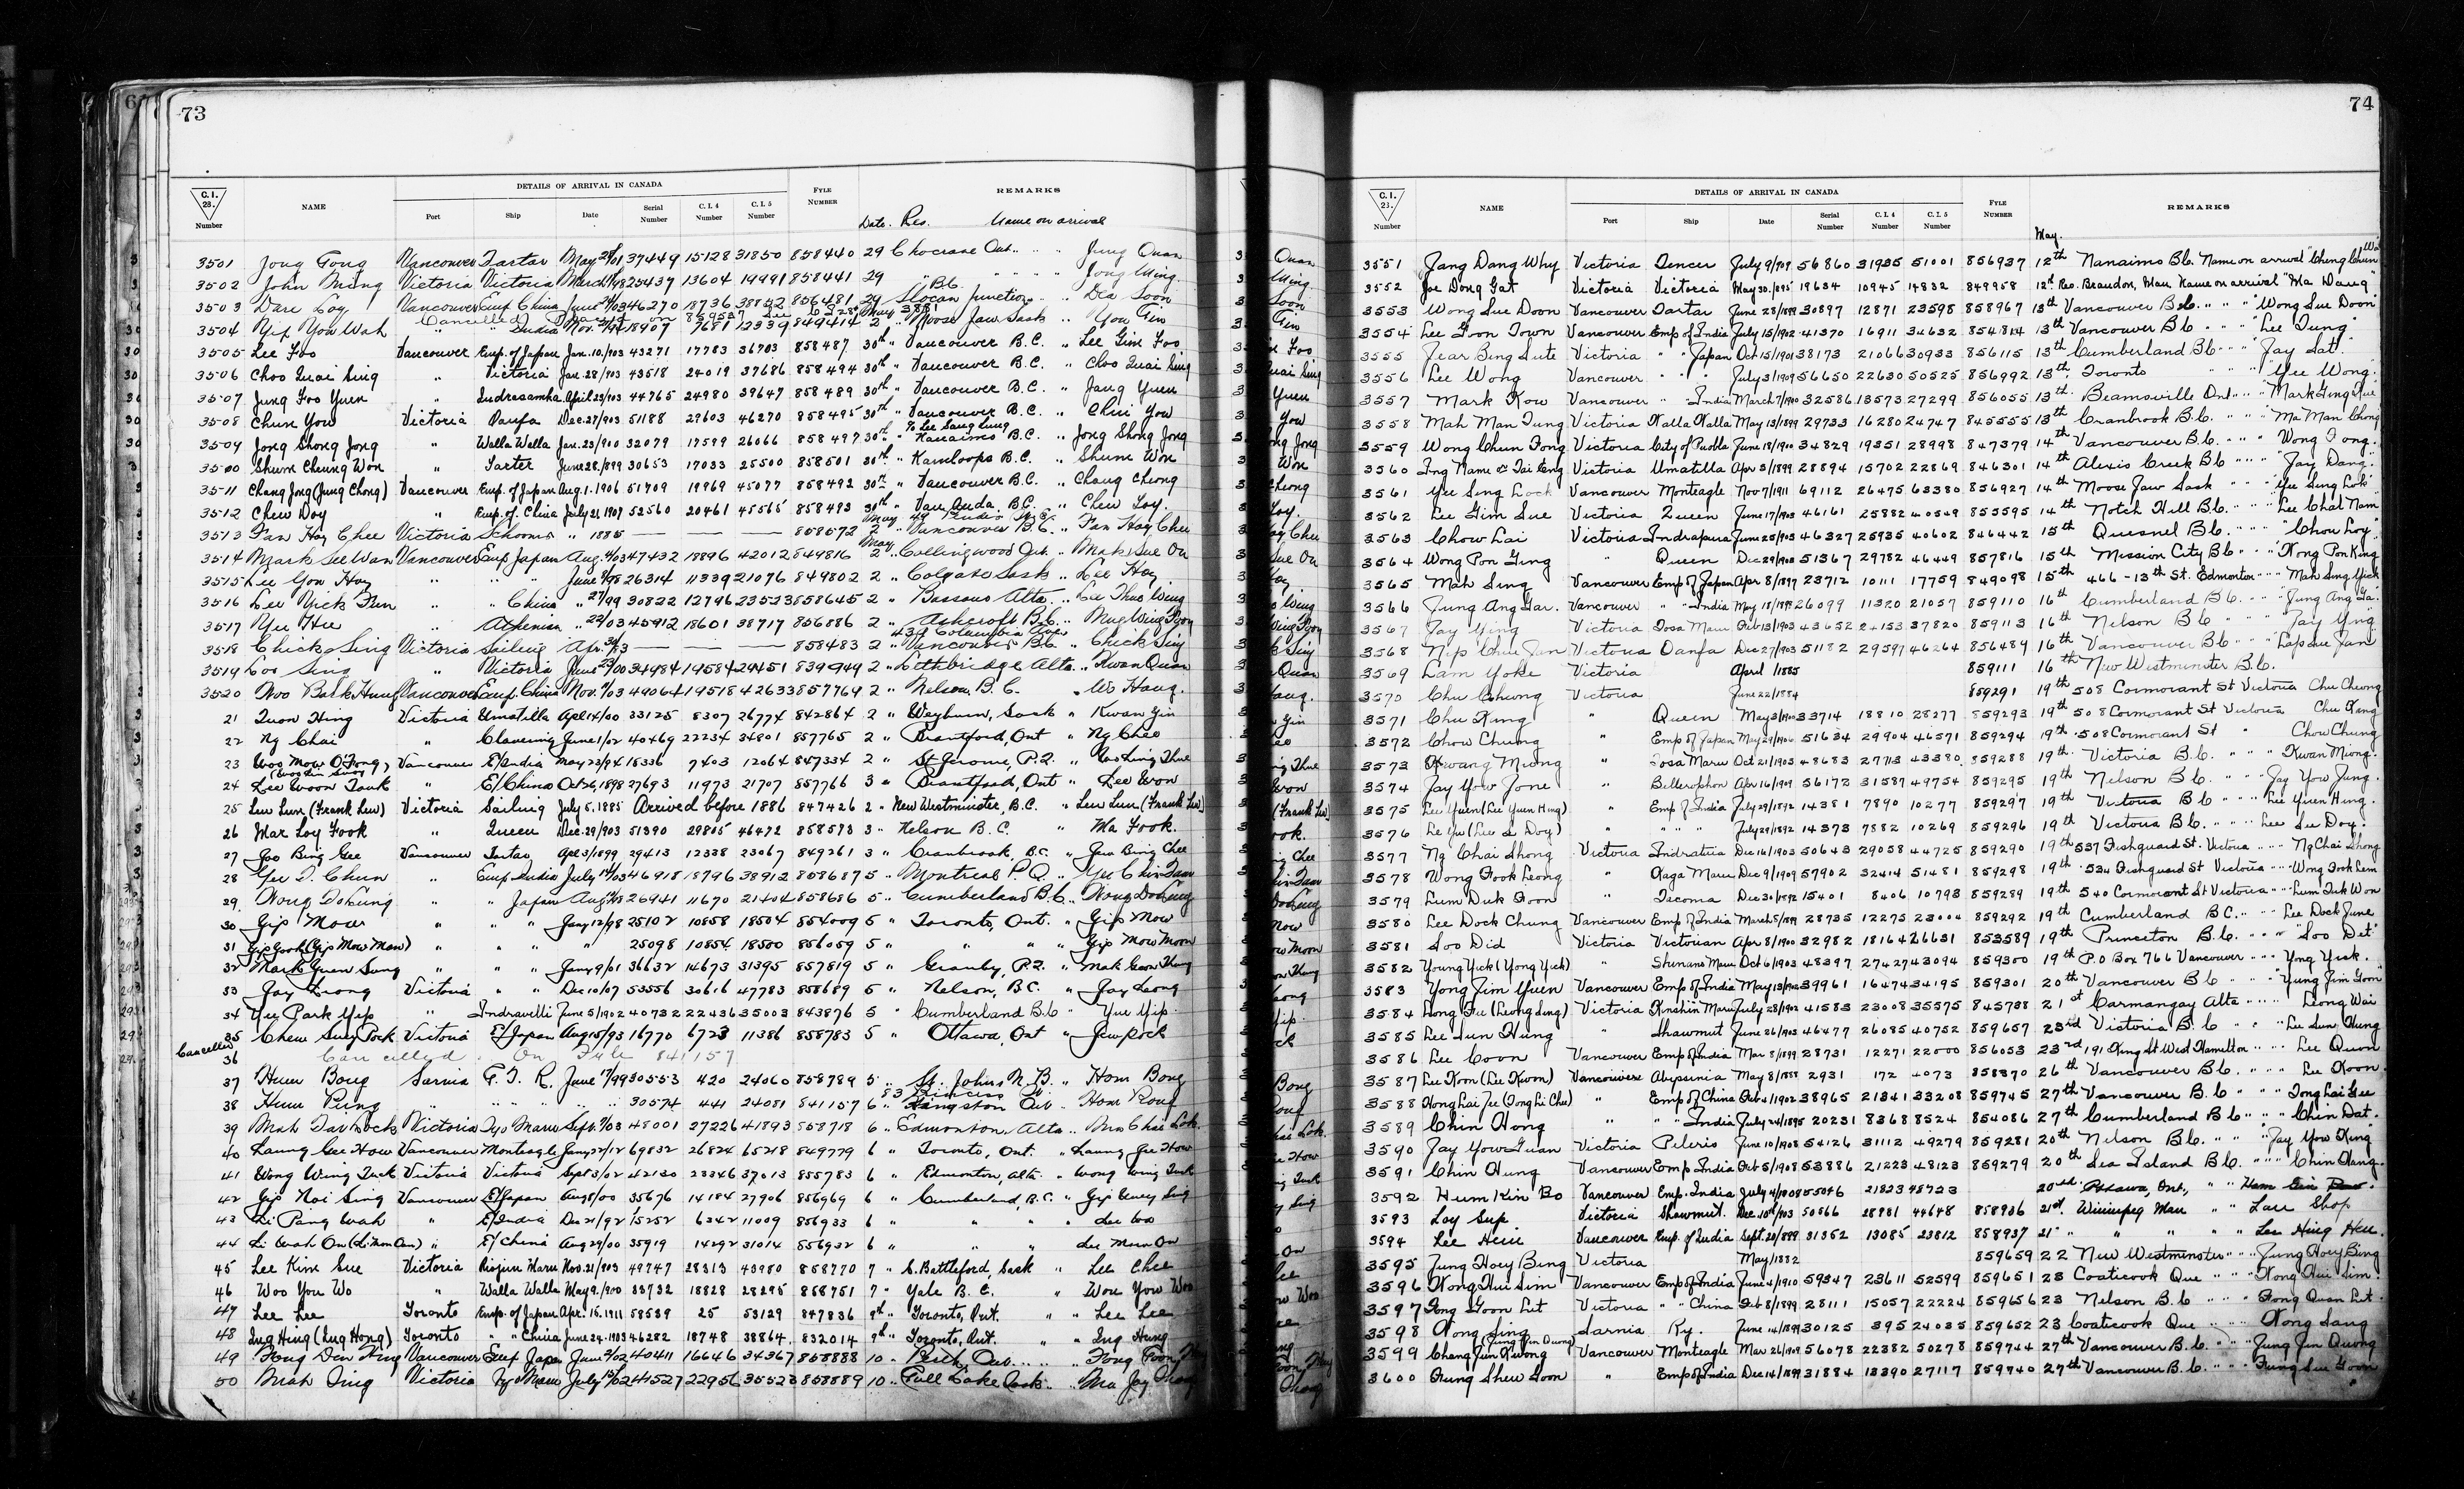 73
C.I. 28. Number NAME DETAILS OF ARRIVAL IN CANADA Port Ship Date Serial Number C.I.4 Number C.I.5 Number FYLE NUMBER REMARKS
Date. Res. Name on arrival
3501 Jong Gong Vancouver Tartar May 29/01 37449 15128 31850 858440 29 Ont. Jung Quan
3502 John Ming Victoria Victoria March 98 25437 13604 19991 858441 29 " B.C. Jong Ming
3503 Dare Coy Vancouver Emp China June 03 46270 18736 856481 29 Slocan Junction Dea Soon
3504 Yip You Wah " India Nov. 18907 7681 12339 849414 2 " Moose Jaw Sask You Tin
3505 Lee Foo Vancouver Emp. of Japan Jan. 10/903 43271 17783 36703 858487 30th " Vancouver B.C. " Lee Gim Foo
3506 Choo Quai Sing " Victoria Jan. 28/903 43518 24019 37686 858494 30th " Vancouver B.C. " Choo Quai Sing
3507 Jung Foo Yuen " Indrasamha April 28/903 44765 24980 39647 858489 30th " Vancouver B.C. " Jang Yuen
3508 Chun You Victoria Oanfa Dec. 27/903 51188 29603 46270 858495 30th " Vancouver B.C. " Chin You
3509 Jong Shong Jong " Walla Walla Jan. 23/900 32079 17599 26066 858497 30th " Nanaimo B.C. " Jong Shong Jong
3500 Shum Cheung Won " Tartar June 28/899 30653 17033 25500 858501 30th " Kamloops B.C. " Shum Won
3511 Chang Jong (Jung Chong) Vancouver Emp. of Japan Aug. 1. 1906 51709 19969 45077 858492 30th " Vancouver B.C. " Chang Cheong
3512 Chew Doy " Emp. of China July 21, 1907 52560 20461 45565 858493 30th " Van Anda B.C. " Chew Toy.
3513 Fan Hoy Chee Victoria Schooner " 1885 — — — 858572 2 " Vancouver B.C. " Fan Hoy Chee
3514 Mark See Wan Vancouver Emp Japan Aug. 03 47432 18896 42012 849816 2 " Collingwood Ont. " Mak Sue On
3515 Lee Yon Hoy " " " June 8/98 26314 11339 21076 849802 2 " Colgate Sask " Lee Hoy
3516 Lee Yick Fun " " China " 27/99 30822 12796 23523 858645 2 " Bassano Alta. " Lee Thue Wing
3517 Yee Hee " Athenian " 22/03 45912 18601 38717 856586 2 " Ashcroft B.C.
3518 Chick Sing Victoria Sailing Apr. 83 — — — 858483 2 " Vancouver B.C. " Chick Sing
3519 Loo Sing " Victoria June 23/00 34984 19584 29451 839949 2 " Lethbridge Alta. " Kwan Quan
3520 Woo Bark Hung Vancouver Emp. China Nov. 03 49064 19518 42633 857769 2 " Nelson B.C. " Wo Hang.
21 Quon Hing Victoria Umatilla Apl 14/00 33125 8307 26774 842864 2 " Weyburn, Sask " Kwan Yin
22 Ng Chai " Clavering June 1/02 40469 22234 34801 857765 2 " Brantford, Ont " Ng Chee
23 Woo Mow O'Fong, Vancouver E/India May 23/94 18336 7403 12064 847334 2 " St Jerome, P.Q.
24 Lee Woon Tauk " E/China Oct 26, 1898 27693 11973 21707 857766 3 " Brantford, Ont " Lee Won
25 Leu Lun (Frank Lew) Victoria Sailing July 5, 1885 Arrived before 1886 847426 2 " New Westminster, B.C. " Leu Lun (Frank Lew)
26 Mar Loy Fook " Queen Dec. 29/903 51390 29805 46472 858573 3 " Nelson B.C. " Ma Fook.
27 Joo Bing Gee Vancouver Tartar Apl 3/1899 29413 12338 23067 849261 3 " Cranbrook, B.C. " Jew Bing Chee
28 Yee I. Chun " Emp India July 03 46918 18796 38912 858687 5 " Montreal P.Q. " Yee Chin Taw
29 Wong Do Ling " " Japan Aug 98 26941 11670 21404 858686 5 " Cumberland B.C.
30 Gip Mow " " " Jany 12/98 25102 10858 18504 854009 5 " Toronto, Ont. " Gip Mow
31 Gip Gook (Gip Mow Maw) " " " " 25098 10854 18500 856059 5 " " " " Gip Mow Moon
32 Mark Yuen Sung " " " Jany 9/01 36632 14673 31395 857819 5 " Granby, P.Q.
33 Jay Leong Victoria " " Dec 10/07 53556 30616 47783 858689 5 " Nelson, B.C. " Jay Leong
34 Yee Park Yip " Indravelli June 5/1902 40732 22436 35003 843876 5 " Cumberland B.C. " Yee Yip
35 Chew Suey Pock Victoria E/Japan Aug 15/93 16770 6723 11386 858783 5 " Ottawa, Ont " Jew Pock
Cancelled 36 Cancelled. On File 841157
37 Hum Bong Sarnia G.T.R. June 17/99 30553 420 24060 858789 5 " St. Johns N.B. " Hom Bong
38 Hum Pung " " " " 30574 441 24081 841157 6 " Kingston Ont.
39 Mah Tar Lock Victoria Tyo Maru Sept. 03 48001 27226 41893 858718 6 " Edmonton, Alta. " Ma Chai Lok.
40 Laung Gee How Vancouver Monteagle Jany 22/12 69832 26824 65218 849779 6 " Toronto, Ont. " Laung Gee How
41 Wong Wing Tuck Victoria Victoria Sept 3/02 42130 23346 37013 855783 6 " Edmonton, Alta. " Wong Wing Tuck
42 Gip Noi Sing Vancouver E/Japan Aug 8/00 35676 14184 27906 856969 6 " Cumberland, B.C. " Gip Uney Sing
43 Li Pang Wah " E/India Dec 21/92 15252 6342 11009 856933 6 " " " " Lee Wo
44 Li Wah On (Li Mon On) " E/China Aug 29/00 35919 14292 31014 856932 6 " " " Lee Mow On
45 Lee Kim Sue Victoria Riojun Maru Nov. 21/903 49747 28313 43980 858770 7 " N. Battleford, Sask " Lee Chee
46 Woo You Wo " Walla Walla May 9/900 33732 18828 28295 858751 7 " Yale B.C. " Wou Yow Woo
47 Lee Lee Toronto Emp. of Japan Apr. 15. 1911 58539 25 53129 847836 9th " Toronto, Ont. " " Lee Lee
48 Ing Hing (Ing Hong) Toronto " " China June 24. 1903 46282 18748 38864. 832014 9th " Toronto, Ont. " " Ing Hung
49 Fong Den Hing Vancouver Emp Japan June 02 40411 16646 34367 858888 10 " Perth, Ont. " Fong Foon
50 Mah Ing Victoria Tyo Maru July 02 41527 22956 35523 858889 10 " Gull Lake Sask. " Ma Jay
74
C.I. 23. Number NAME DETAILS OF ARRIVAL IN CANADA Port Ship Date Serial Number C.I.4 Number C.I.5 Number FYLE NUMBER REMARKS
May.
3551 Jang Dang Why Victoria Tencer July 9/909 56860 31935 51001 856937 12th Nanaimo B.C. Name on arrival "Cheng Chun Wa
3552 Joe Dong Gat Victoria Victoria May 30./895 19634 10945 14832 849958 12th Res. Brandon, Man Name on arrival "Ma Dang".
3553 Wong Sue Doon Vancouver Tartar June 28/1899 30897 12871 23598 858967 13th Vancouver B.C. " " " "Wong Sue Doon"
3554 Lee Goon Town Vancouver Emp of India July 15/1902 41370 16911 34632 854814 13th Vancouver B.C. " " "Lee Tung"
3555 Jear Bing Sute Victoria " " Japan Oct 15/1901 38173 21066 30933 856115 13th Cumberland B.C. " " "Jay Sat".
3556 Lee Wong Vancouver " " " July 3/1909 56650 22630 50525 856992 13th, Toronto " " "Yee Wong.
3557 Mark Kow Vancouver " " India March 7/1900 32586 13573 27299 856055 13th. Beamsville Ont. " " "Mark Ging Kue"
3558 Mah Man Tung Victoria Walla Walla May 13/1899 29733 16280 24747 845555 13th Cranbrook B.C. " " "Ma Man Chong
3559 Wong Chun Fong Victoria City of Puebla June 18/1900 34829 19351 28998 847379 14th Vancouver B.C. " " " "Wong Fong.
3560 Ing Name or Tai Eng Victoria Umatilla Apr 5/1899 28894 15702 22869 846301 14th Alexis Creek B.C. " " " "Jay Dang".
3561 Yee Sing Lock Vancouver Monteagle Nov 7/1911 69112 26475 63380 856927 14th Moose Jaw Sask " " " "Yee Sing Lok"
3562 Lee Gim Sue Victoria Queen June 17/1903 46161 25882 40549 853595 14th Notch Hill B.C. " " " "Lee Chat Nam"
3563 Chow Lai Victoria Indrapura June 25/1903 46327 25935 40602 846442 15th Quesnel B.C. " " " "Chow Loy".
3564 Wong Pon Ging " Queen Dec 29/1903 51367 29782 46449 857816 15th Mission City B.C. " " "Wong Pon King
3565 Mah Sing Vancouver Emp of Japan Apr 8/1897 23712 10111 17759 849098 15th 466-13th St. Edmonton " " " Mah Sing Yick
3566 Jung Ang Gar. Vancouver " " India May 18/1898 26099 11320 21057 859110 16th Cumberland B.C. " " "Jung Ang Ga.
3567 Jay Ying Victoria Tosa Maru Feb 13/1903 43652 24153 37820 859113 16th Nelson B.C. " " "Jay Yng
3568 Nip Chue Jan Victoria Oanfa Dec 27/1903 51182 29597 46264 856489 16th Vancouver B.C.
3569 Lam Yoke Victoria April 1885 859111 16th New Westminster B.C.
3570 Chu Cheung Victoria June 22/1884 859291 19th 508 Cormorant St Victoria Chu Cheong
3571 Chu King " Queen May 3/1900 33714 18810 28277 859293 19th 508 Cormorant St Victoria Chu King
3572 Chow Chung " Emp of Japan May 29/1906 51634 29904 46571 859294 19th 508 Cormorant St " Chow Chung
3573 Kwang Miong " Tosa Maru Oct 21/1903 48683 27713 43380 859288 19th. Victoria B.C. " " " Kwan Miong.
3574 Jay Yow Jone " Bellerophon Apr 16/1909 56172 31589 49754 859295 19th Nelson B.C. " " Jay Yow Jung.
3575 Lee Yuen (Lee Yuen Hing) " Emp of India July 29/1892 14381 7890 10277 859297 19th Victoria B.C. " " " Lee Yuen Hing.
3576 Le Yu (Lee Su Doy) " " " " July 29/1892 14373 7882 10269 859296 19th Victoria B.C. " " " Lee Su Doy.
3577 Ng Chai Shong Victoria Indratura Dec 16/1903 50643 29058 44725 859290 19th 537 Fishguard St. Victoria " " " Ng Chai Shong
3578 Wong Fook Leong " Kaga Maru Dec 9/1909 57902 32414 51481 859298 19th 534 Fishguard St Victoria " " Wong Fook Lem
3579 Lum Duk Foon " Tacoma Dec 30/1892 15401 8406 10793 859289 19th 540 Cormorant St Victoria " " Lum Tuk Won
3580 Lee Dock Chung Vancouver Emp of India March 8/1899 28735 12275 23004 859292 19th Cumberland BC. " " Lee Dock June
3581 Soo Did Victoria Victorian Apr 8/1900 32982 18164 26631 853589 19th Princeton B.C. " " " "Soo Det"
3582 Young Yick (Yong Yick) " Shinano Maru Oct 6/1903 48397 27427 43094 859300 19th P.O Box 766 Vancouver " " " Yong Yick.
3583 Yong Jim Yuen Vancouver Emp of India May 13/1902 39961 16474 34195 859301 20th Vancouver B.C " " " "Yung Jim Goon"
3584 Long Fu (Leong Sing) Victoria Kinshiu Maru July 28/1902 41583 23008 35575 845788 21st Carmangay Alta " " " " Leong Wai
3585 Lee Sun Hung " Shawmut June 26/1903 46477 26085 40752 859657 23rd Victoria B.C " " "Lee Sun Hung
3586 Lee Coon Vancouver Emp of India Mar 8/1899 28731 12271 22000 856053 23rd 191 King St West Hamilton " " " Lee Quon
3587 Lee Koon (Lee Kwon) Vancouver Abyssinia May 8/1888 2931 172 4073 858370 26th Vancouver B.C. " " " Lee Koon.
3588 Hong Lai Jee (Tong Li Chee) " Emp of China Feb 4/1902 38965 21341 33208 859745 27th Vancouver B.C " " " Tong Lai Gee
3589 Chin Hong " " India July 24/1895 20231 8368 8524 854086 27th Cumberland B C " " " Chin Dat.
3590 Jay Yow Guan Victoria Peleris June 10/1908 54126 31112 49279 859281 20th Nelson B.C. " " "Jay Yow King"
3591 Chin Hung Vancouver Emp India Feb 5/1908 53886 21223 48123 859279 20th Sea Island B.C. " " " Chin Hang.
3592 Hum Kin Bo Vancouver Emp. India July 4/1908 55046 21823 48723 20th Ottawa, Ont.,
3593 Loy Sup. Victoria Shawmut. Dec. 10th/903 50566 28981 44648 858936 21st. Winnipeg Man " " Lau Shop
3594 Lee Heui Vancouver Emp. of India Sept. 20/1899 31352 13085 23812 858937 21" " " " " Leu Hing Heu.
3595 Jung Hoey Bing Victoria May/1882 859659 22 New Westminster " " " Jung Hoey Bing
3596 Wong Hui Sim Vancouver Emp of India June 4/1910 59347 23611 52599 859651 23 Coaticook Que " " " Wong Hui Sim.
3597 Fong Goon Lit Victoria " " China Feb 8/1899. 28111 15057 22224 859656 23 Nelson B.C " " " Fong Quan Lit.
3598 Wong Sing Sarnia Ry. June 14/1899 30125 395 24035 859652 23 Coaticook Que " " " Wong Sang
3599 Chang Jun Kwong Vancouver Monteagle Mar 26/1909 56078 22382 50278 859744 27th Vancouver B.C. " " " Jung Jin Quong
3600 Fung Shew Goon " Emp of India Dec 14/1899 31884 13390 27117 859740 27th Vancouver B.C. " " " Fung Siu Goon